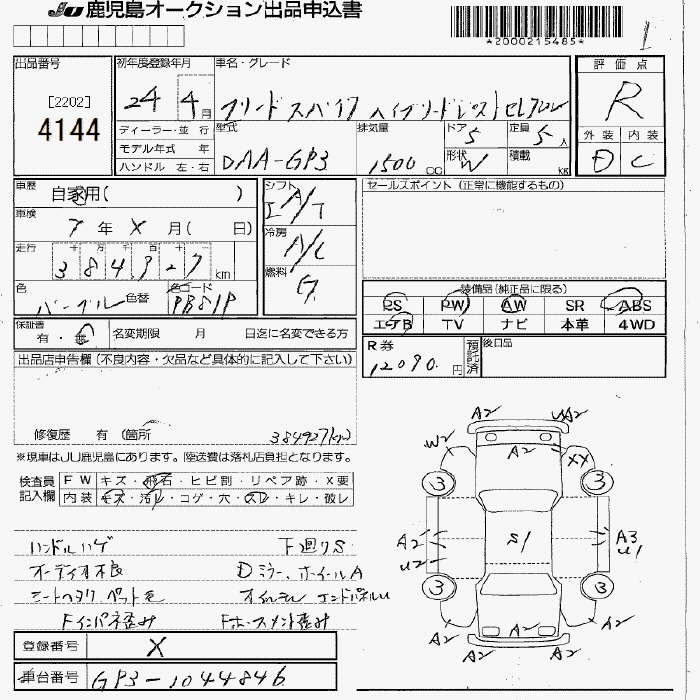 JU 鹿児島オークション出品申込書
*2000215485*
1
出品番号 初年度登録年月 車名・グレード 評価点
[2202] 24 4月 フリードスパイク ハイブリッドジャストセレクション R
4144
ディーラー・並行 型式 排気量 ドア 5 定員 5人 外装 内装
モデル年式 年 DAA-GP3 1500CC 形状 W 積載 kg D C
ハンドル 左・右
車歴 自家用( ) シフト セールスポイント(正常に機能するもの)
I A/T
車検 7年 X月( 日) 冷房 A/C
走行 十 万 千 百 十 一
384927km 燃料 G
色 パープル 色替 色コード PB81P
装備品(純正品に限る)
PS PW AW SR ABS
エアB TV ナビ 本革 4WD
保証書 有・無 名変期限 月 日迄に名変できる方
R券 12090.円 預託済 後日品
出品店申告欄(不良内容・欠品など具体的に記入して下さい)
修復歴 有 (箇所 384927km)
※現車はJU鹿児島にあります。陸送費は落札店負担となります。
検査員記入欄 FW キズ・飛石・ヒビ割・リペア跡・X要
内装 キズ・汚れ・コゲ・穴・スレ・キレ・破レ
ハンドルハゲ 下廻りS
オーディオ不良 Dミラー、ホイールA
シートヘタリ ペット毛 エンドパネルU
Fインパネ歪み Fホースメント歪み
登録番号 X
車台番号 GP3-1044846
A2 UA2
W2 A2 XX
3 3
A2 S1 A3
U2 U1
3 3
A2 A2 A2
A2 A2